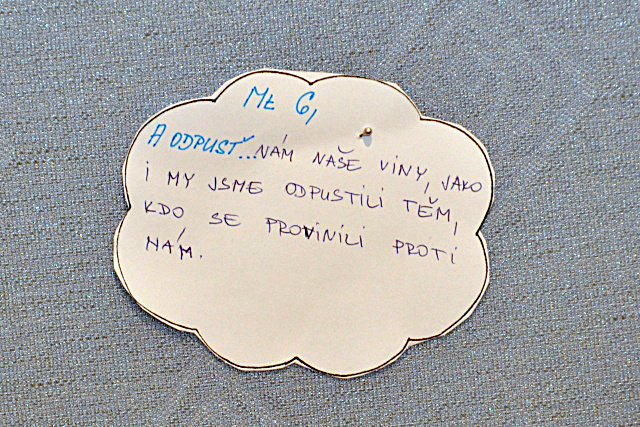 Mt 6,
A ODPUSŤ...NÁM NAŠE VINY, JAKO
I MY JSME ODPUSTILI TĚM,
KDO SE PROVINILI PROTI
NÁM.